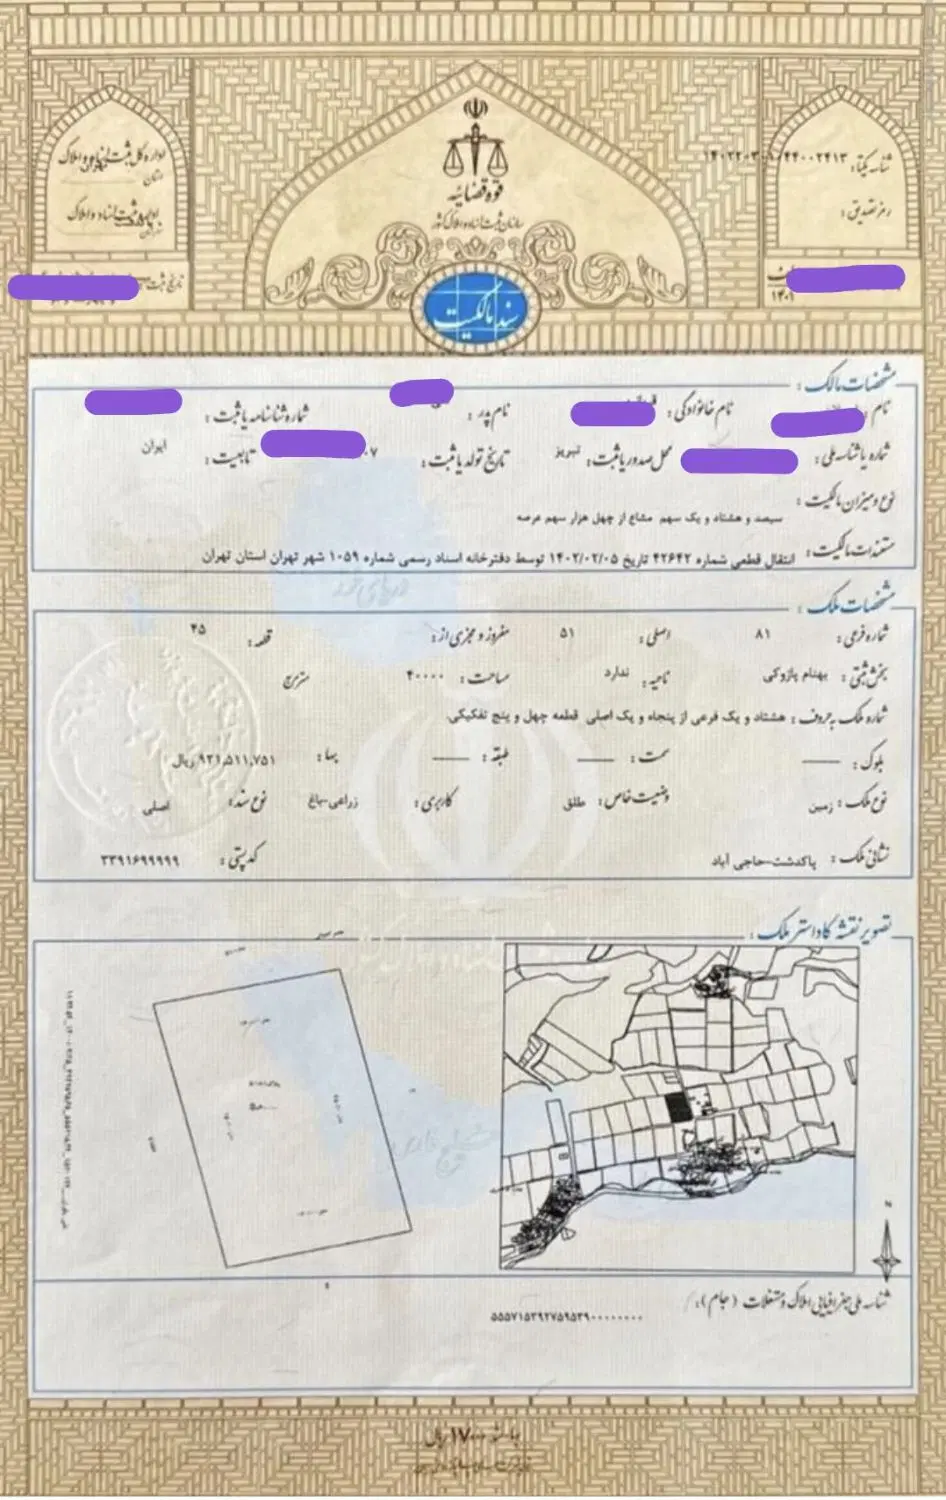 قوه قضائیه
سازمان ثبت اسناد و املاک کشور
سند مالکیت
اداره کل ثبت اسناد و املاک
استان
تهران
اداره ثبت اسناد و املاک
شناسه یکتا:
رمز تصدیق:
تاریخ ثبت
۱۴۰۱
مشخصات مالک:
نام
نام خانوادگی:
نام پدر:
شماره شناسنامه یا ثبت:
شماره یا شناسه ملی:
محل صدور یا ثبت: تبریز
تاریخ تولد یا ثبت:
۰۷
تابعیت: ایران
نوع و میزان مالکیت: سیصد و هشتاد و یک سهم مشاع از چهل هزار سهم عرصه
مستندات مالکیت: انتقال قطعی شماره ۴۲۶۴۲ تاریخ ۱۴۰۲/۰۲/۰۵ توسط دفترخانه اسناد رسمی شماره ۱۰۵۹ شهر تهران استان تهران
مشخصات ملک:
شماره فرعی: ۸۱ اصلی: ۵۱ مفروز و مجزی از: قطعه: ۴۵
بخش ثبتی: بهنام پازوکی ناحیه: ندارد مساحت: ۴۰۰۰۰ مترمربع
شماره ملک به حروف: هشتاد و یک فرعی از پنجاه و یک اصلی قطعه چهل و پنج تفکیکی
بلوک: سمت: طبقه: بها: ۹۳۱,۵۱۱,۷۵۱ ریال
نوع ملک: زمین وضعیت خاص: طلق کاربری: زراعی-باغ نوع سند: اصلی
نشانی ملک: پاکدشت-حاجی آباد کدپستی: ۳۳۹۱۶۹۹۹۹۹
تصویر نقشه کاداستر ملک:
دریای خزر
خلیج فارس
شناسه ملی جغرافیایی املاک و مستغلات (جام):
۵۵۵۷۱۵۳۹۲۷۵۹۵۳۹۰۰۰۰۰۰۰۰
بها شده ۱۷۰۰۰ ریال